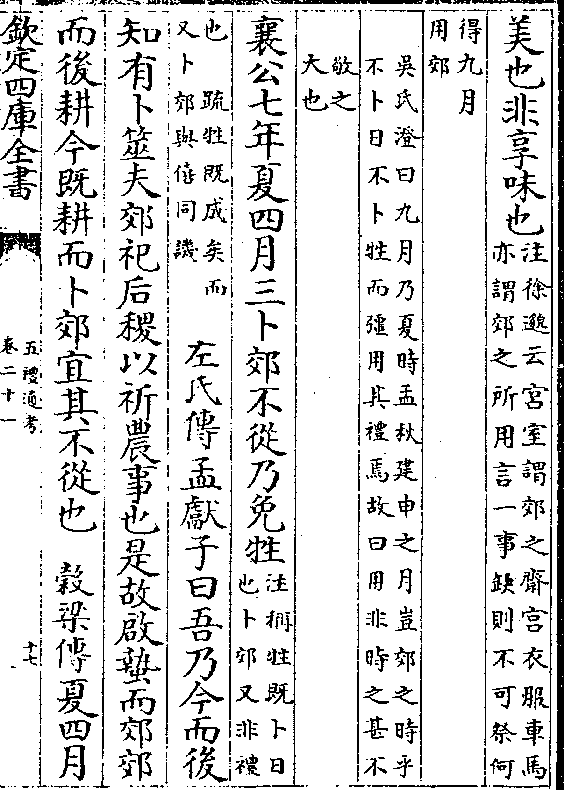 美也非享味也
注徐邈云宮室謂郊之齋宮衣服車馬
亦謂郊之所用言一事缺則不可祭何
得九月
用郊
吳氏澄曰九月乃夏時孟秋建申之月豈郊之時乎
不卜日不卜牲而彊用其禮焉故曰用非時之甚不
敬之
大也
襄公七年夏四月三卜郊不從乃免牲
注稱牲既卜日
也卜郊又非禮
也 疏牲既成矣而
又卜郊與僖同譏
左氏傳孟獻子曰吾乃今而後
知有卜筮夫郊祀后稷以祈農事也是故啟蟄而郊郊
而後耕今既耕而卜郊宜其不從也 穀梁傳夏四月
欽定四庫全書
五禮通考
卷二十一
十七